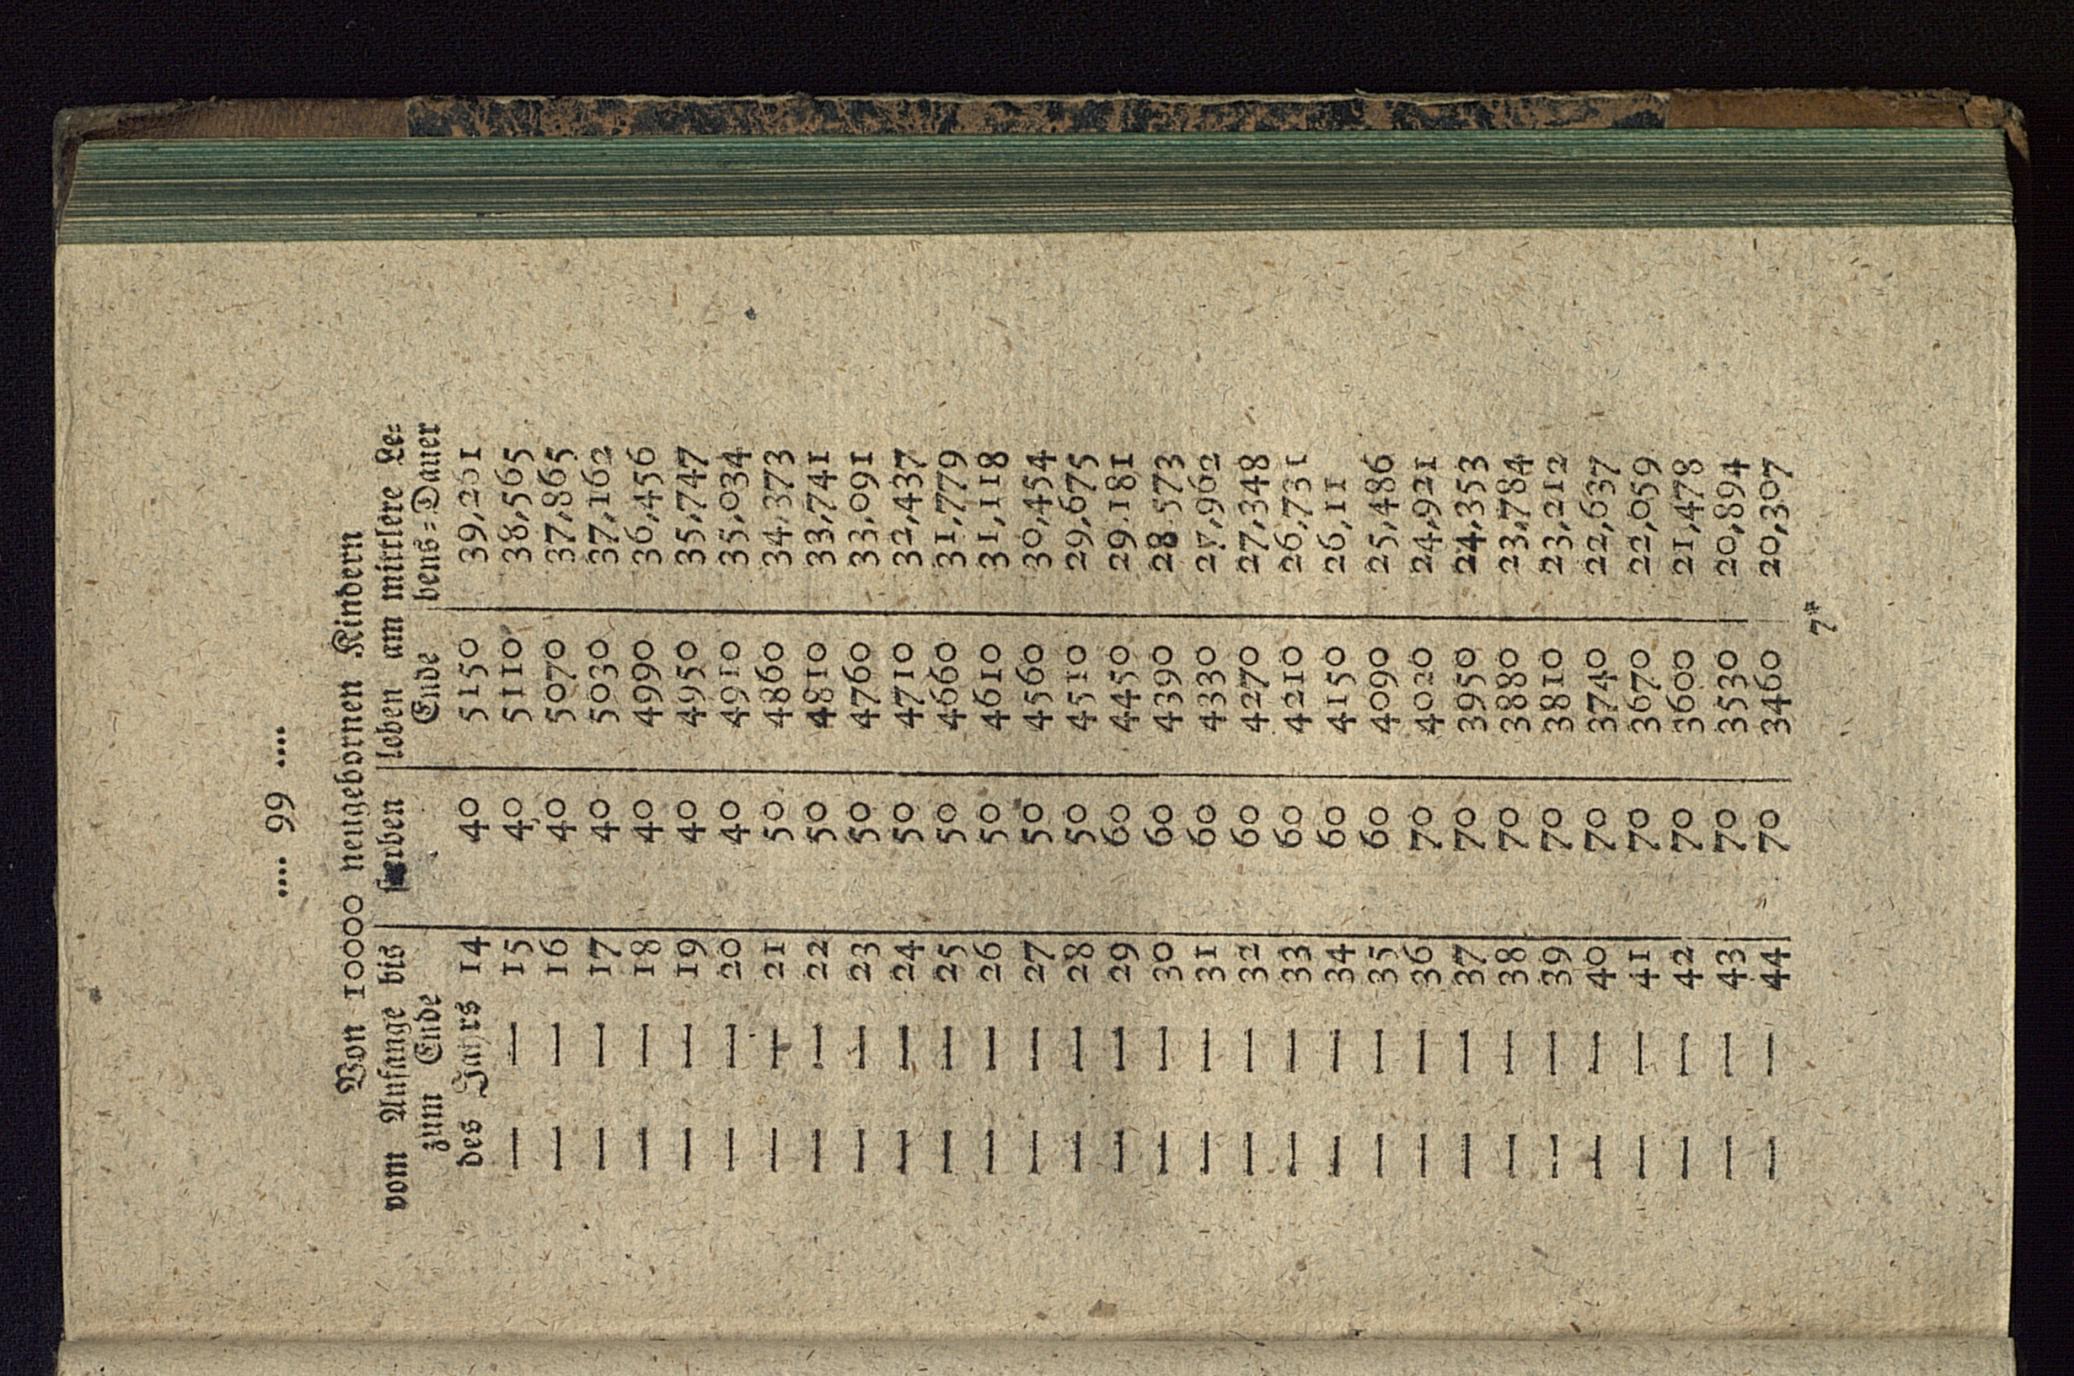 .... 99 ....
Von 10000 neugebornen Kindern
vom Anfange bis | sterben | leben am | mittlere Le=
zum Ende | | Ende | bens=Dauer
des Jahrs 14 | 40 | 5150 | 39,261
— — 15 | 40 | 5110 | 38,565
— — 16 | 40 | 5070 | 37,865
— — 17 | 40 | 5030 | 37,162
— — 18 | 40 | 4990 | 36,456
— — 19 | 40 | 4950 | 35,747
— — 20 | 40 | 4910 | 35,034
— — 21 | 50 | 4860 | 34,373
— — 22 | 50 | 4810 | 33,741
— — 23 | 50 | 4760 | 33,091
— — 24 | 50 | 4710 | 32,437
— — 25 | 50 | 4660 | 31,779
— — 26 | 50 | 4610 | 31,118
— — 27 | 50 | 4560 | 30,454
— — 28 | 50 | 4510 | 29,675
— — 29 | 60 | 4450 | 29.181
— — 30 | 60 | 4390 | 28 573
— — 31 | 60 | 4330 | 27,962
— — 32 | 60 | 4270 | 27,348
— — 33 | 60 | 4210 | 26,731
— — 34 | 60 | 4150 | 26,11
— — 35 | 60 | 4090 | 25,486
— — 36 | 70 | 4020 | 24,921
— — 37 | 70 | 3950 | 24,353
— — 38 | 70 | 3880 | 23,784
— — 39 | 70 | 3810 | 23,212
— — 40 | 70 | 3740 | 22,637
— — 41 | 70 | 3670 | 22,059
— — 42 | 70 | 3600 | 21,478
— — 43 | 70 | 3530 | 20,894
— — 44 | 70 | 3460 | 20,307
7*